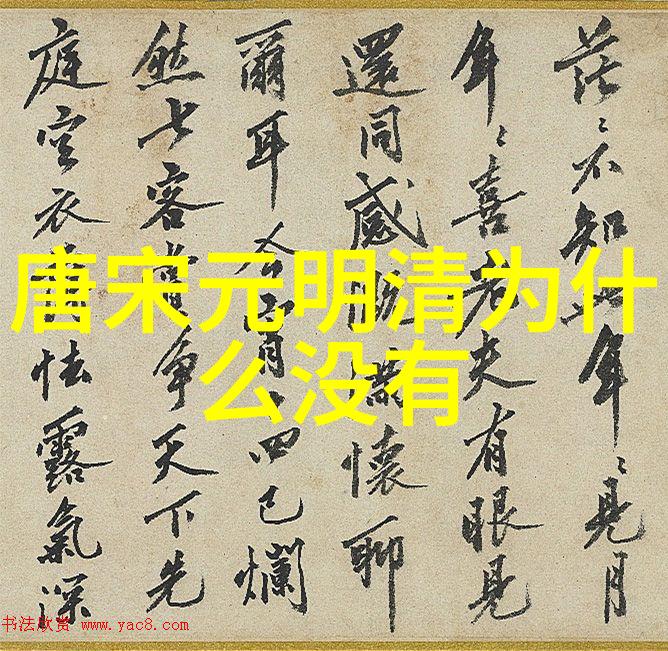 唐宋元明清为什
么没有
茫〻不知年〻見月
年〻喜老夫有眼見
還同感懷聊
爾耳月四已爛
然七客争天下先
庭空衣怯露氣深
书法欣赏 www.yac8.com